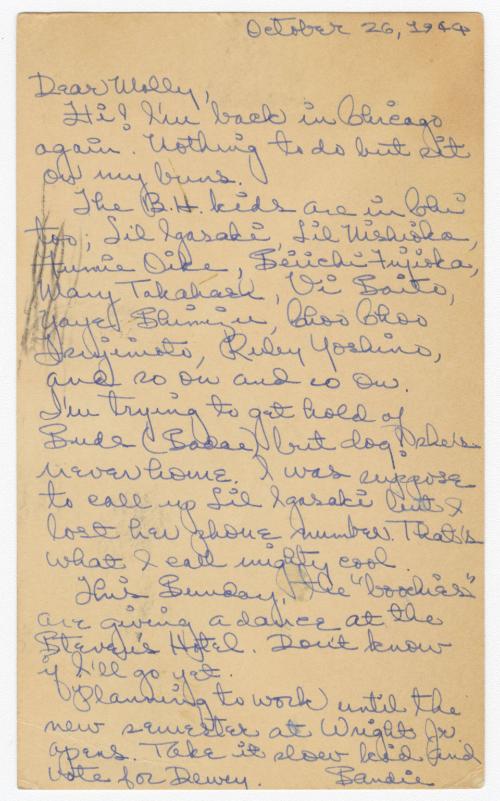 October 26, 1944
Dear Molly,
Hi! I'm back in Chicago
again. Nothing to do but sit
on my buns.
The B.H. kids are in Chi
too; Lil Igasaki, Lil Nishioka,
Fumie Oike, Seiichi Fujioka,
Mary Takahashi, Vi Saito,
Yaye Shimizu, Choo Choo
Tsujimoto, Riley Yoshino,
and so on and so on.
I'm trying to get hold of
Buds (Sadae) but dog! she's
never home. I was suppose
to call up Lil Igasaki but I
lost her phone number. That's
what I call mighty cool.
This Sunday, the "boochies"
are giving a dance at the
Stevens Hotel. Don't know
if I'll go yet.
Planning to work until the
new semester at Wright Jr.
opens. Take it slow kid and
vote for Dewey. Sandie